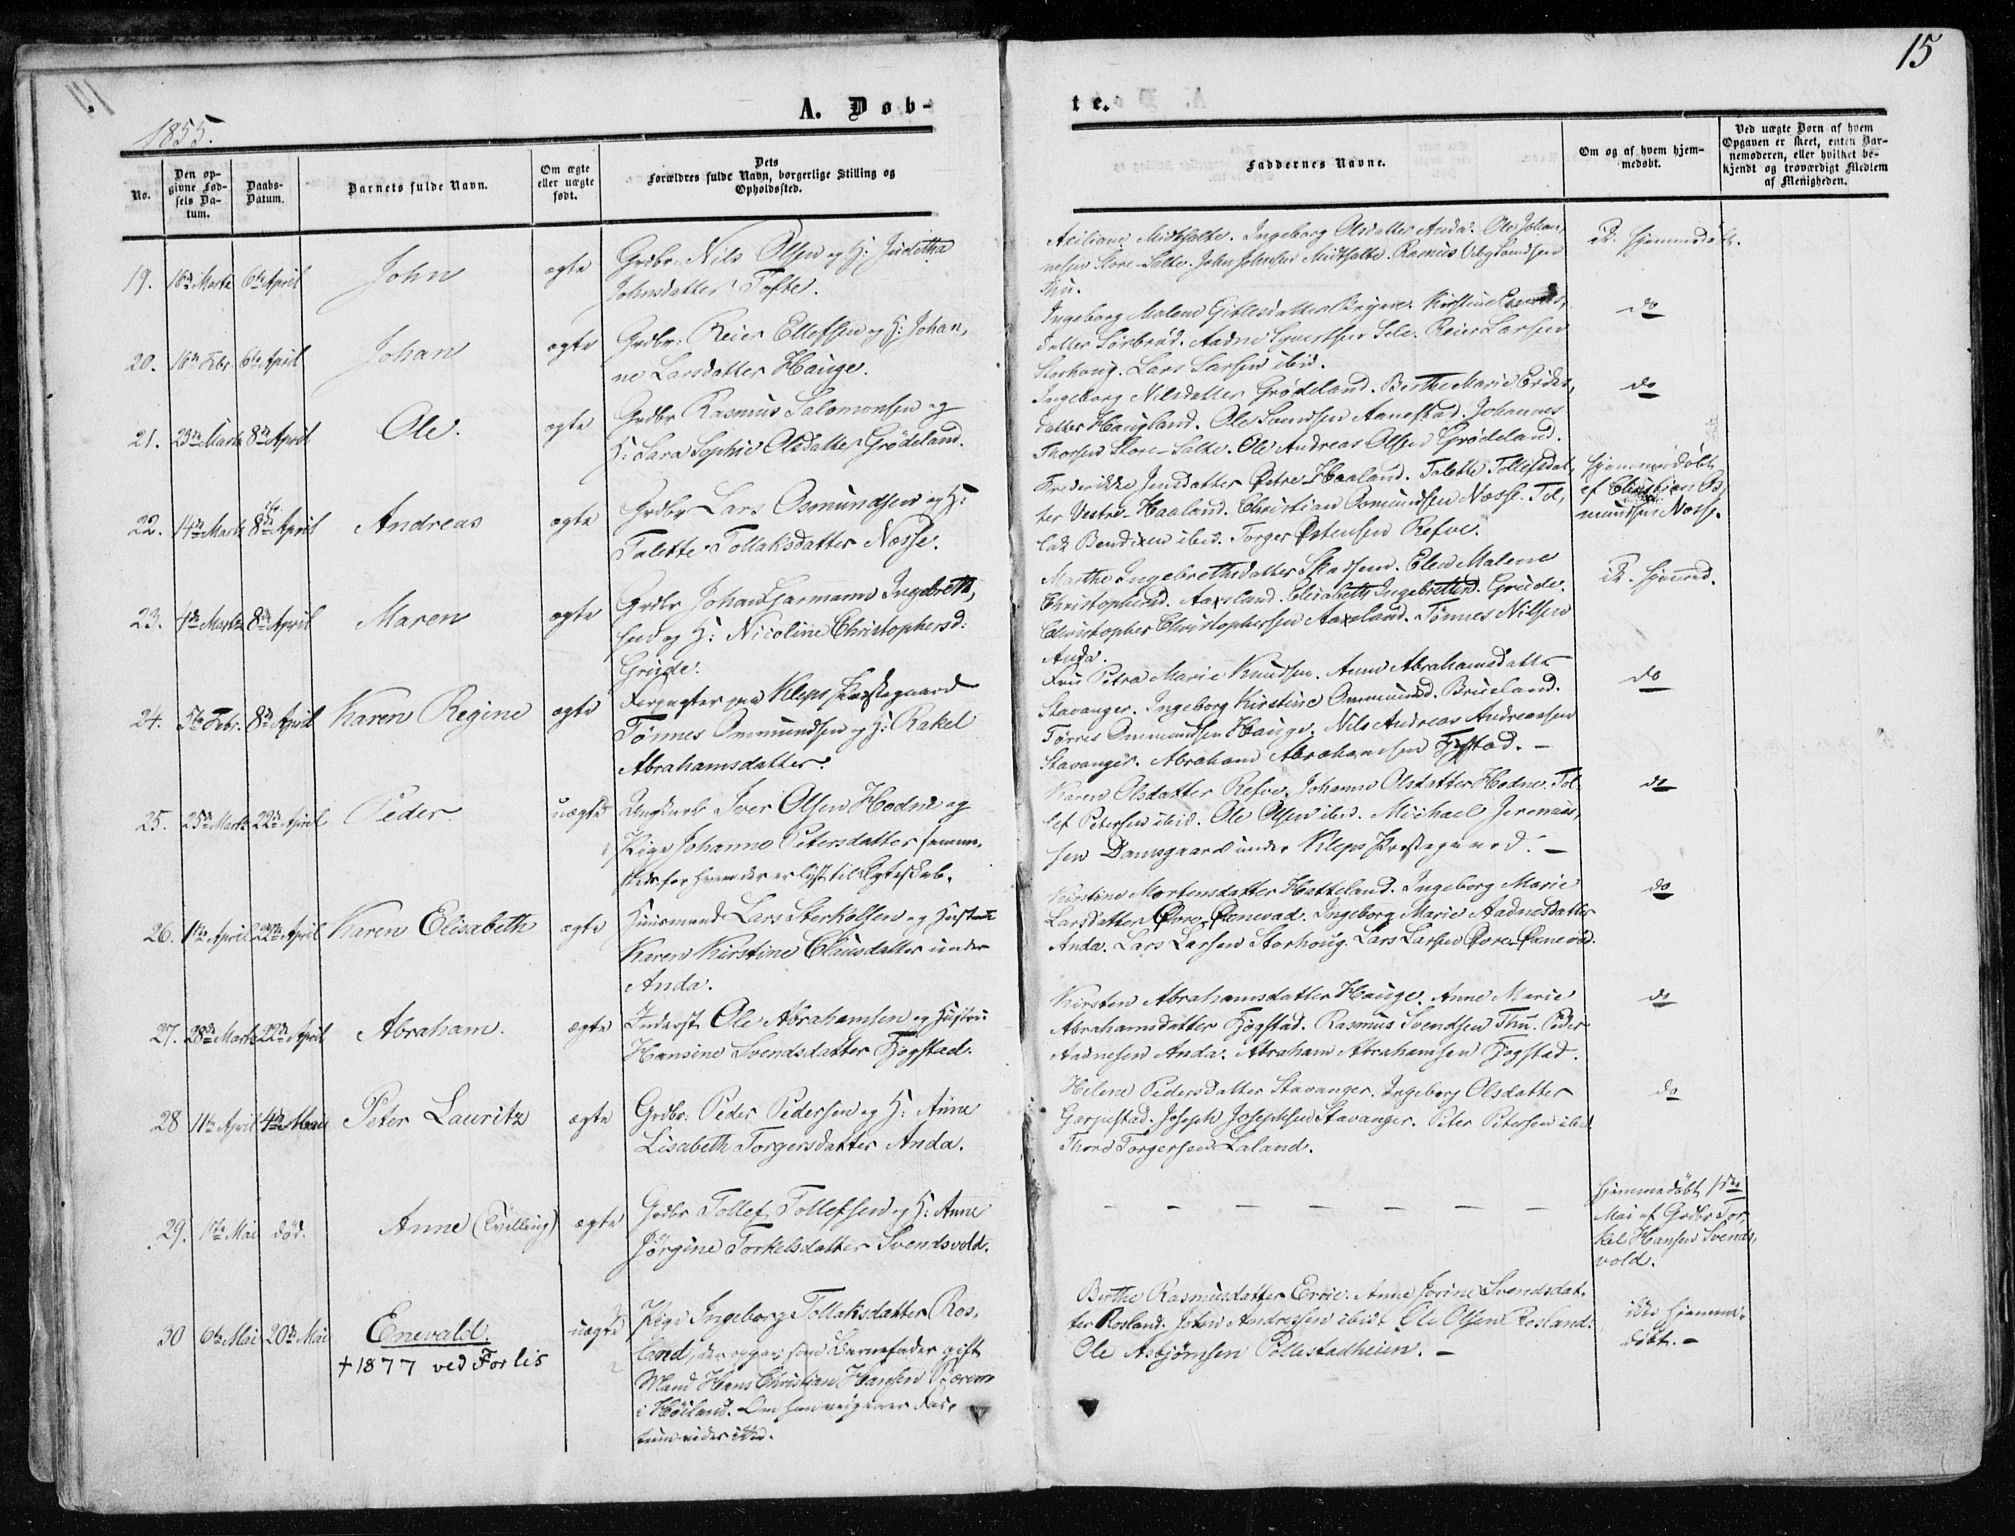 15
A. Døb-
te.
1855.
No.
Den opgivne Fødsels Datum.
Daabs-Datum.
Barnets fulde Navn.
Om ægte eller uægte født.
Dets Forældres fulde Navn, borgerlige Stilling og Opholdssted.
Faddernes Navne.
Om og af hvem hjemmedøbt.
Ved uægte Børn af hvem Opgaven er skeet, enten Barnemoderen, eller hvilket bekjendt og troværdigt Medlem af Menigheden.
19. 16de Marts 6te April John ægte
Grdbr: Nils Olsen og H: Juditha
Johnsdatter Tofte.
Midtsalte. Ingeborg Olsdatter Anda. Ole Johan,
nesen Store-Salte. John Johnsen Midtsalte. Rasmus
Thu.
Hjemmedøbt.
20. 16de Febr. 6te April Johan ægte
Grdbr: Reier Ellefsen og H: Johan,
ne Larsdatter Hauge.
Ingeborg Malene Gitlesdatter Bryne. Kirstine
datter Sørbrød. Aadne Sele. Reier Larsen
Storhoug. Lars Larsen ibid.
do
21. 23de Marts 8de April Ole. ægte
Grdbr Rasmus Salomonsen og
H: Sara Sophie Olsdatter Grødeland.
Ingeborg Nilsdatter Grødeland. Berthe Marie Eriks,
datter Haugland. Ole Svendsen Aanestad. Johannes
Thorsen Store-Salte. Ole Andreas Olsen Grødeland.
do
22. 14de Marts 8de April Andreas ægte
Grdbr Lars Osmundsen og H:
Talette Tollaksdatter Nosse.
Frederikke Jensdatter Østre-Haaland. Talette Tollefsdat,
ter Vestre-Haaland. Christian Osmundsen Nosse. Tol,
lak Bendixen ibid. Torger Østensen Refve.
hjemmedøbt
af Christian Os,
mundsen Nosse.
23. 4de Marts 8de April Maren ægte
Grdbr Johan Gjarmann Ingebreth,
sen og H: Nicoline Christophersd:
Grude.
Marthe Ingebrethsdatter Skadsem. Elen Malene
Christophersd. Aaxsland. Elisabeth Ingebrettsd. Grude.
Christopher Christophersen Aaxeland. Tønnes Nilsen
Anda.
24. 5te Febr. 8de April Karen Regine ægte
Forpagter paa Kleps Præstegaard
Tønnes Ommundsen og H: Rakel
Abrahamsdatter.
Fru Petra Marie Knudsen. Anne Abrahamsdatter
Stavanger. Ingeborg Kirstine Ommundsd. Brueland.
Tørres Ommundsen Hauge. Nils Andreas Andreassen
Stavanger. Abraham Abrahamsen Fjogstad. –
do
25. 25de Marts 22de April Peder uægte
Ungkarl Iver Olsen Hodne og
Pige Johanne Petersdatter samme,
steds for hvem der er lyst til Ægteskab.
Karen Olsdatter Refve. Johanne Olsdatter Hodne. Tol
lef Petersen ibid. Ole Olsen ibid. Michael Jeremias,
sen Damsgaard under Kleps Præstegaard. –
do
26. 1ste April 22de April Karen Elisabeth ægte
Huusmand Lars Sterkolsen og Hustrue
Karen Kirstine Clausdatter under
Anda.
Kirstine Mortensdatter Hatteland. Ingeborg Marie
Larsdatter Øvre-Ønnevad. Ingeborg Marie Aadnesdatter
Anda. Lars Larsen Storhoug. Lars Larsen Øvre-Ønnevad.
do
27. 28de Marts 22de April Abraham. ægte
Inderst Ole Abrahamsen og Hustru
Hansine Svendsdatter Fjogstad.
Kirsten Abrahamsdatter Hauge. Anne Marie
Abrahamsdatter Fjogstad. Rasmus Svendsen Thu. Peder
Aadnesen Anda. Abraham Abrahamsen Fjogstad.
do
28 11te April 4de Mai Peter Lauritz ægte
Grdbr: Peder Pedersen og H: Anne
Lisabeth Torgersdatter Anda.
Helene Pedersdatter Stavanger. Ingeborg Olsdatter
Garpestad. Joseph Josephsen Stavanger. Peter Petersen ibid.
Thore Torgersen Laland.
do
29. 1ste Mai død. Anne (Tvilling) ægte
Grdbr Tollef Tollefsen og H: Anne
Jørgine Torkelsdatter Svendsvold.
– – – – – – –
Hjemmedøbt 1ste
Mai af Grdbr Tor,
kel Hansen Svends,
vold.
30 6te Mai 20de Mai Enevald. uægte
+ 1877 ved Forlis
Pige Ingeborg Tollaksdatter Ros,
land, der opgav som Barnefader gift
Mand Hans Christian Hansen
i Høiland.
Berthe Rasmusdatter Erøie. Anne Jorine Svendsdat,
ter Rosland. John Andersen ibid. Ole Olsen Rosland.
Ole Asbjørnsen Pollestadheien. –
ikke hjemme,
døbt. –